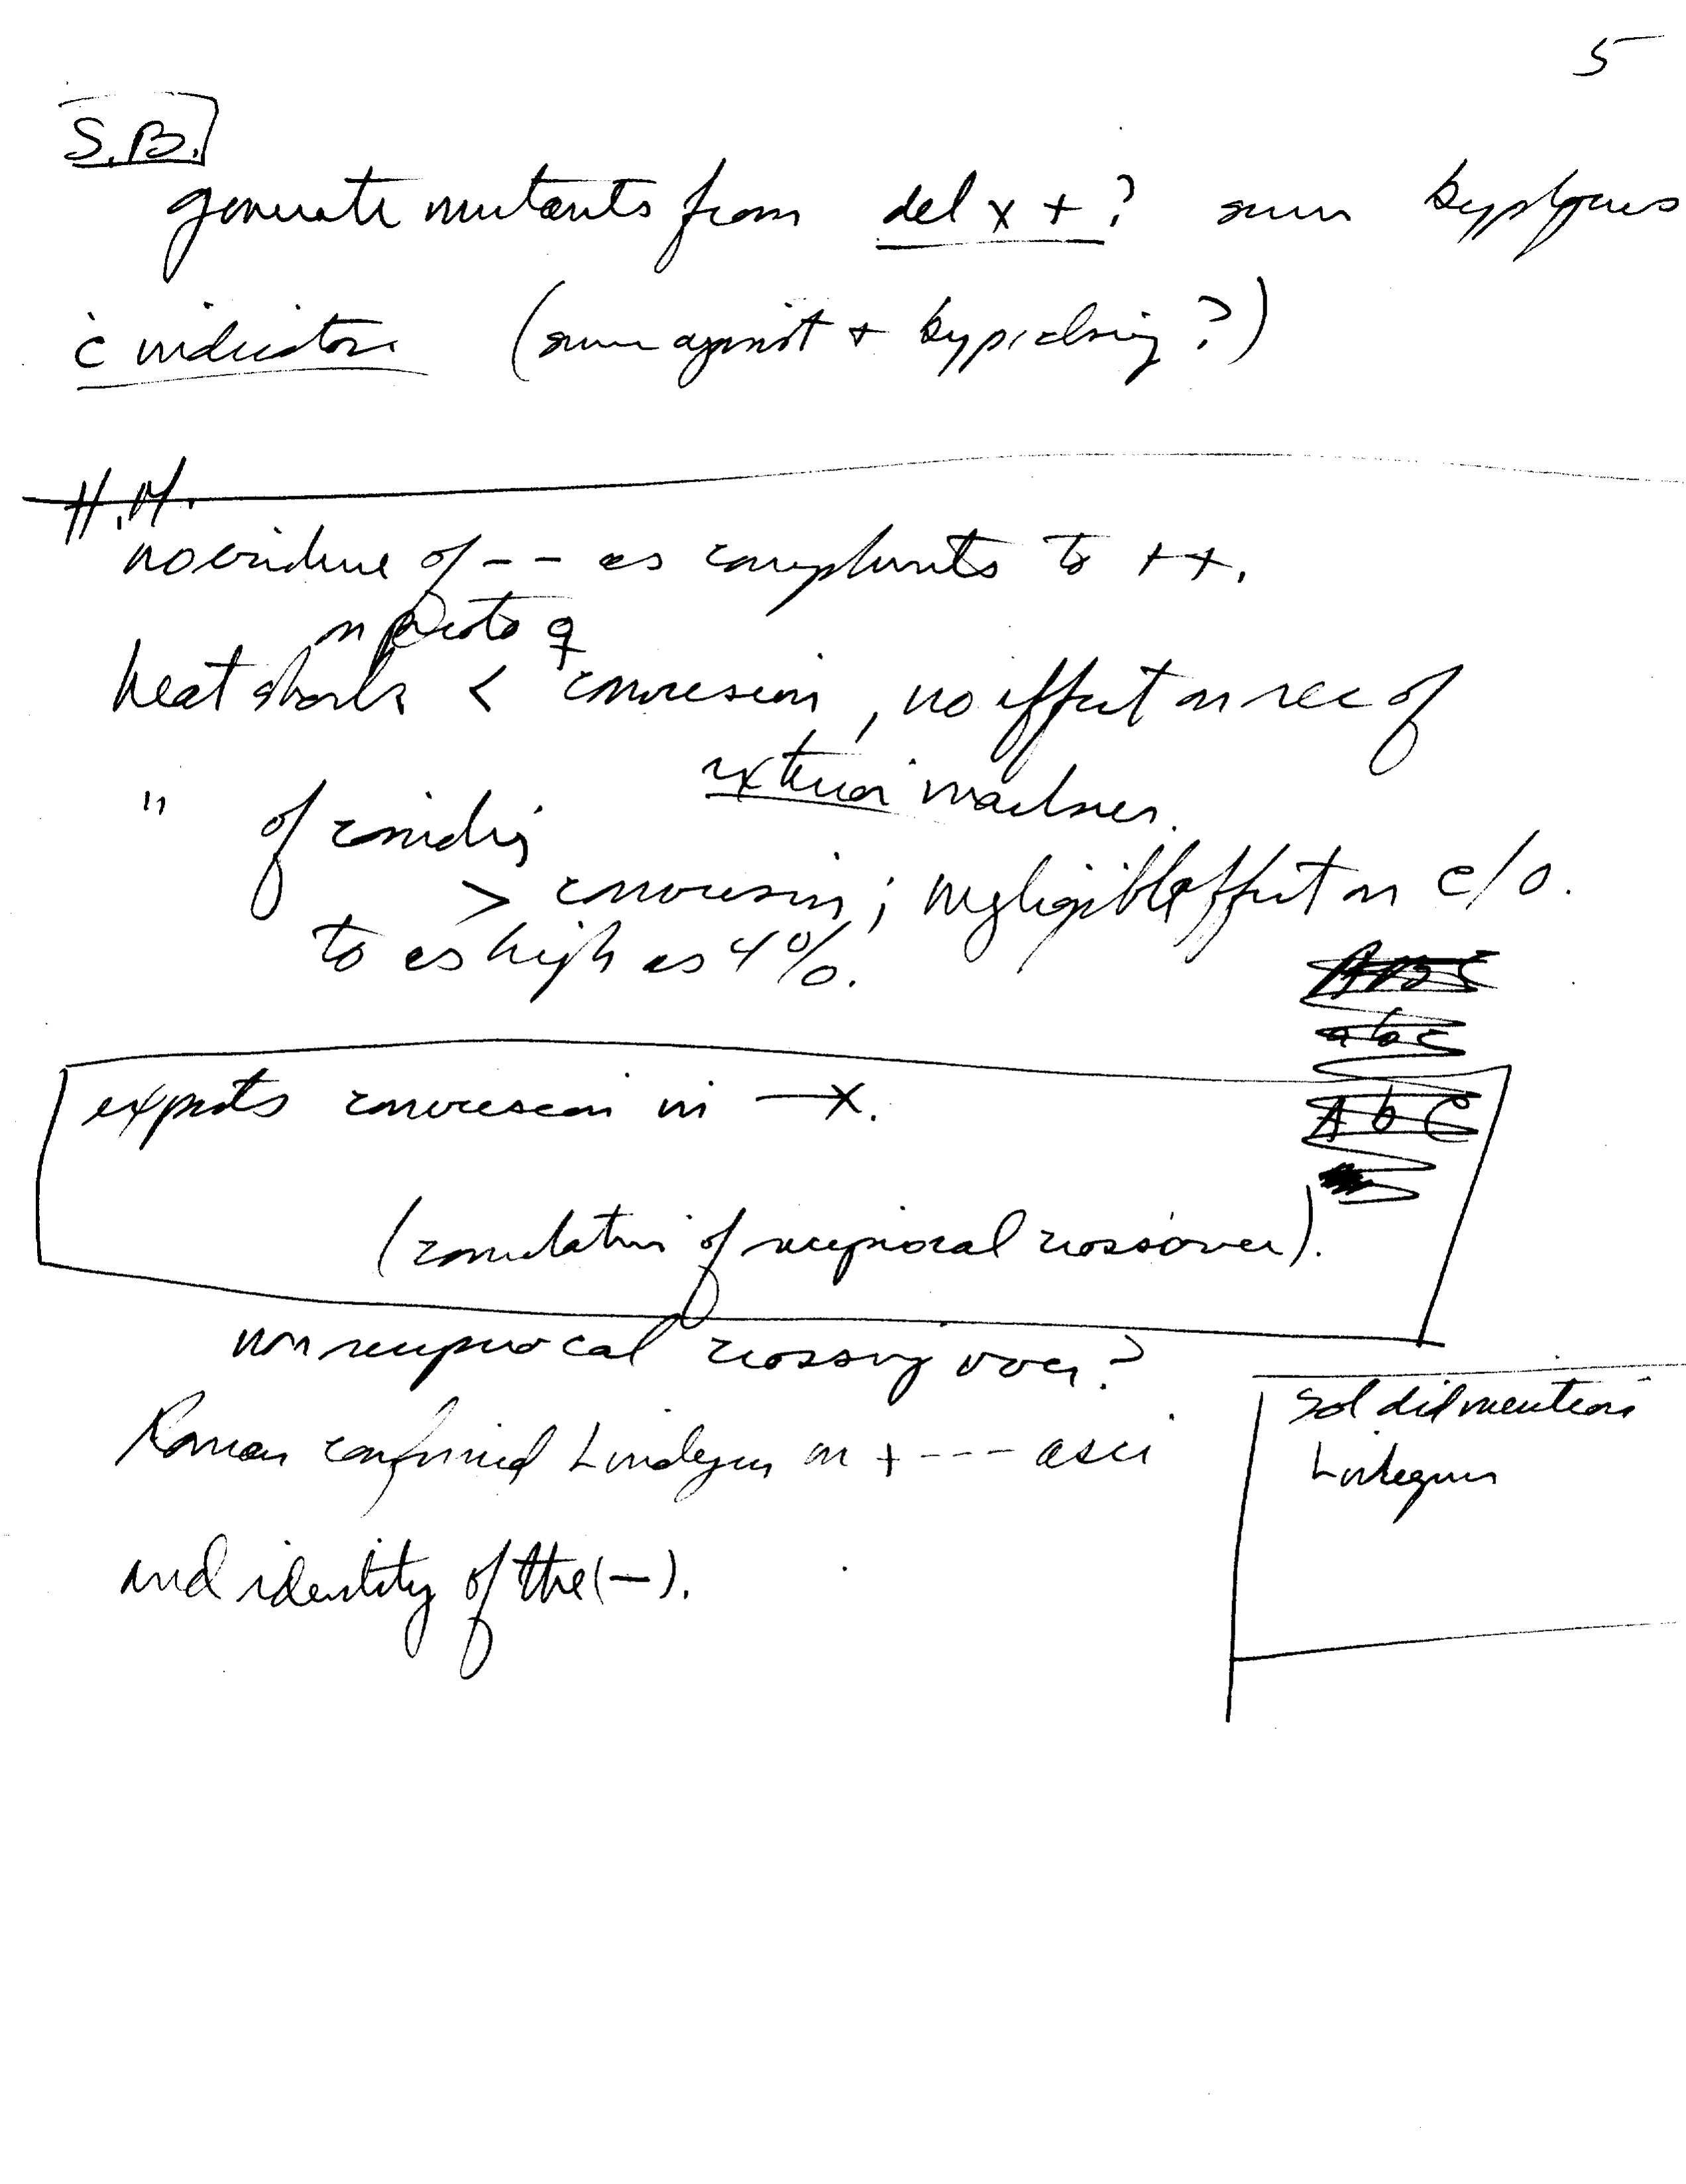 5
S.B.
generate mutants from del x + ?
c̄ indicator (        against +        ?)
H.M.
no evidence of - - as complements to + +.
on proto ♀
heat shock < conversion, no effect on rec of
exterior markers.
" of conidia
> conversion; negligible effect on c/o.
to as high as 4%.
abc
A b C
expects conversion in —x.
(correlation of reciprocal crossover).
non reciprocal crossing over?
Roman confirmed Lindegren on + - - - asci
and identity of the (—).
Sol did mention
Lindegren